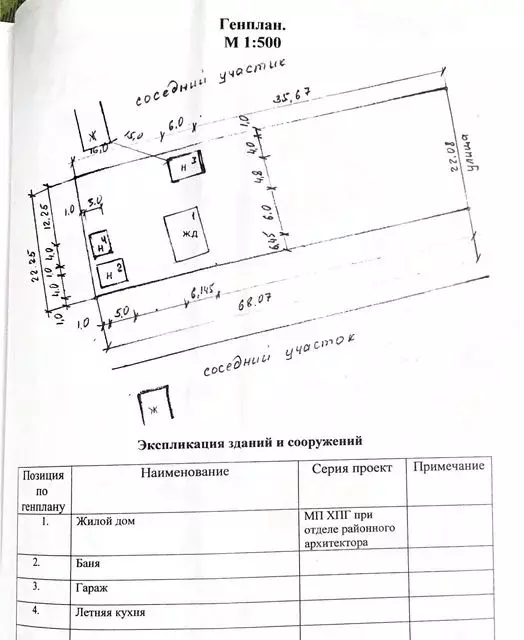 Генплан.
М 1:500
соседний участик
35,67
6.0
15,0
16,0
Ж
1,0
4,0
4,8
6.0
6,45
22.08
улица
Н 3
1
ЖД
Н 4
Н 2
3.0
1.0
12.25
4,0
1.0
4.0
1,0
22.25
1.0
5,0
6,145
68.07
соседний участок
Ж
Экспликация зданий и сооружений
Позиция по генплану
Наименование
Серия проект
Примечание
1.
Жилой дом
МП ХПГ при
отделе районного
архитектора
2.
Баня
3.
Гараж
4.
Летняя кухня